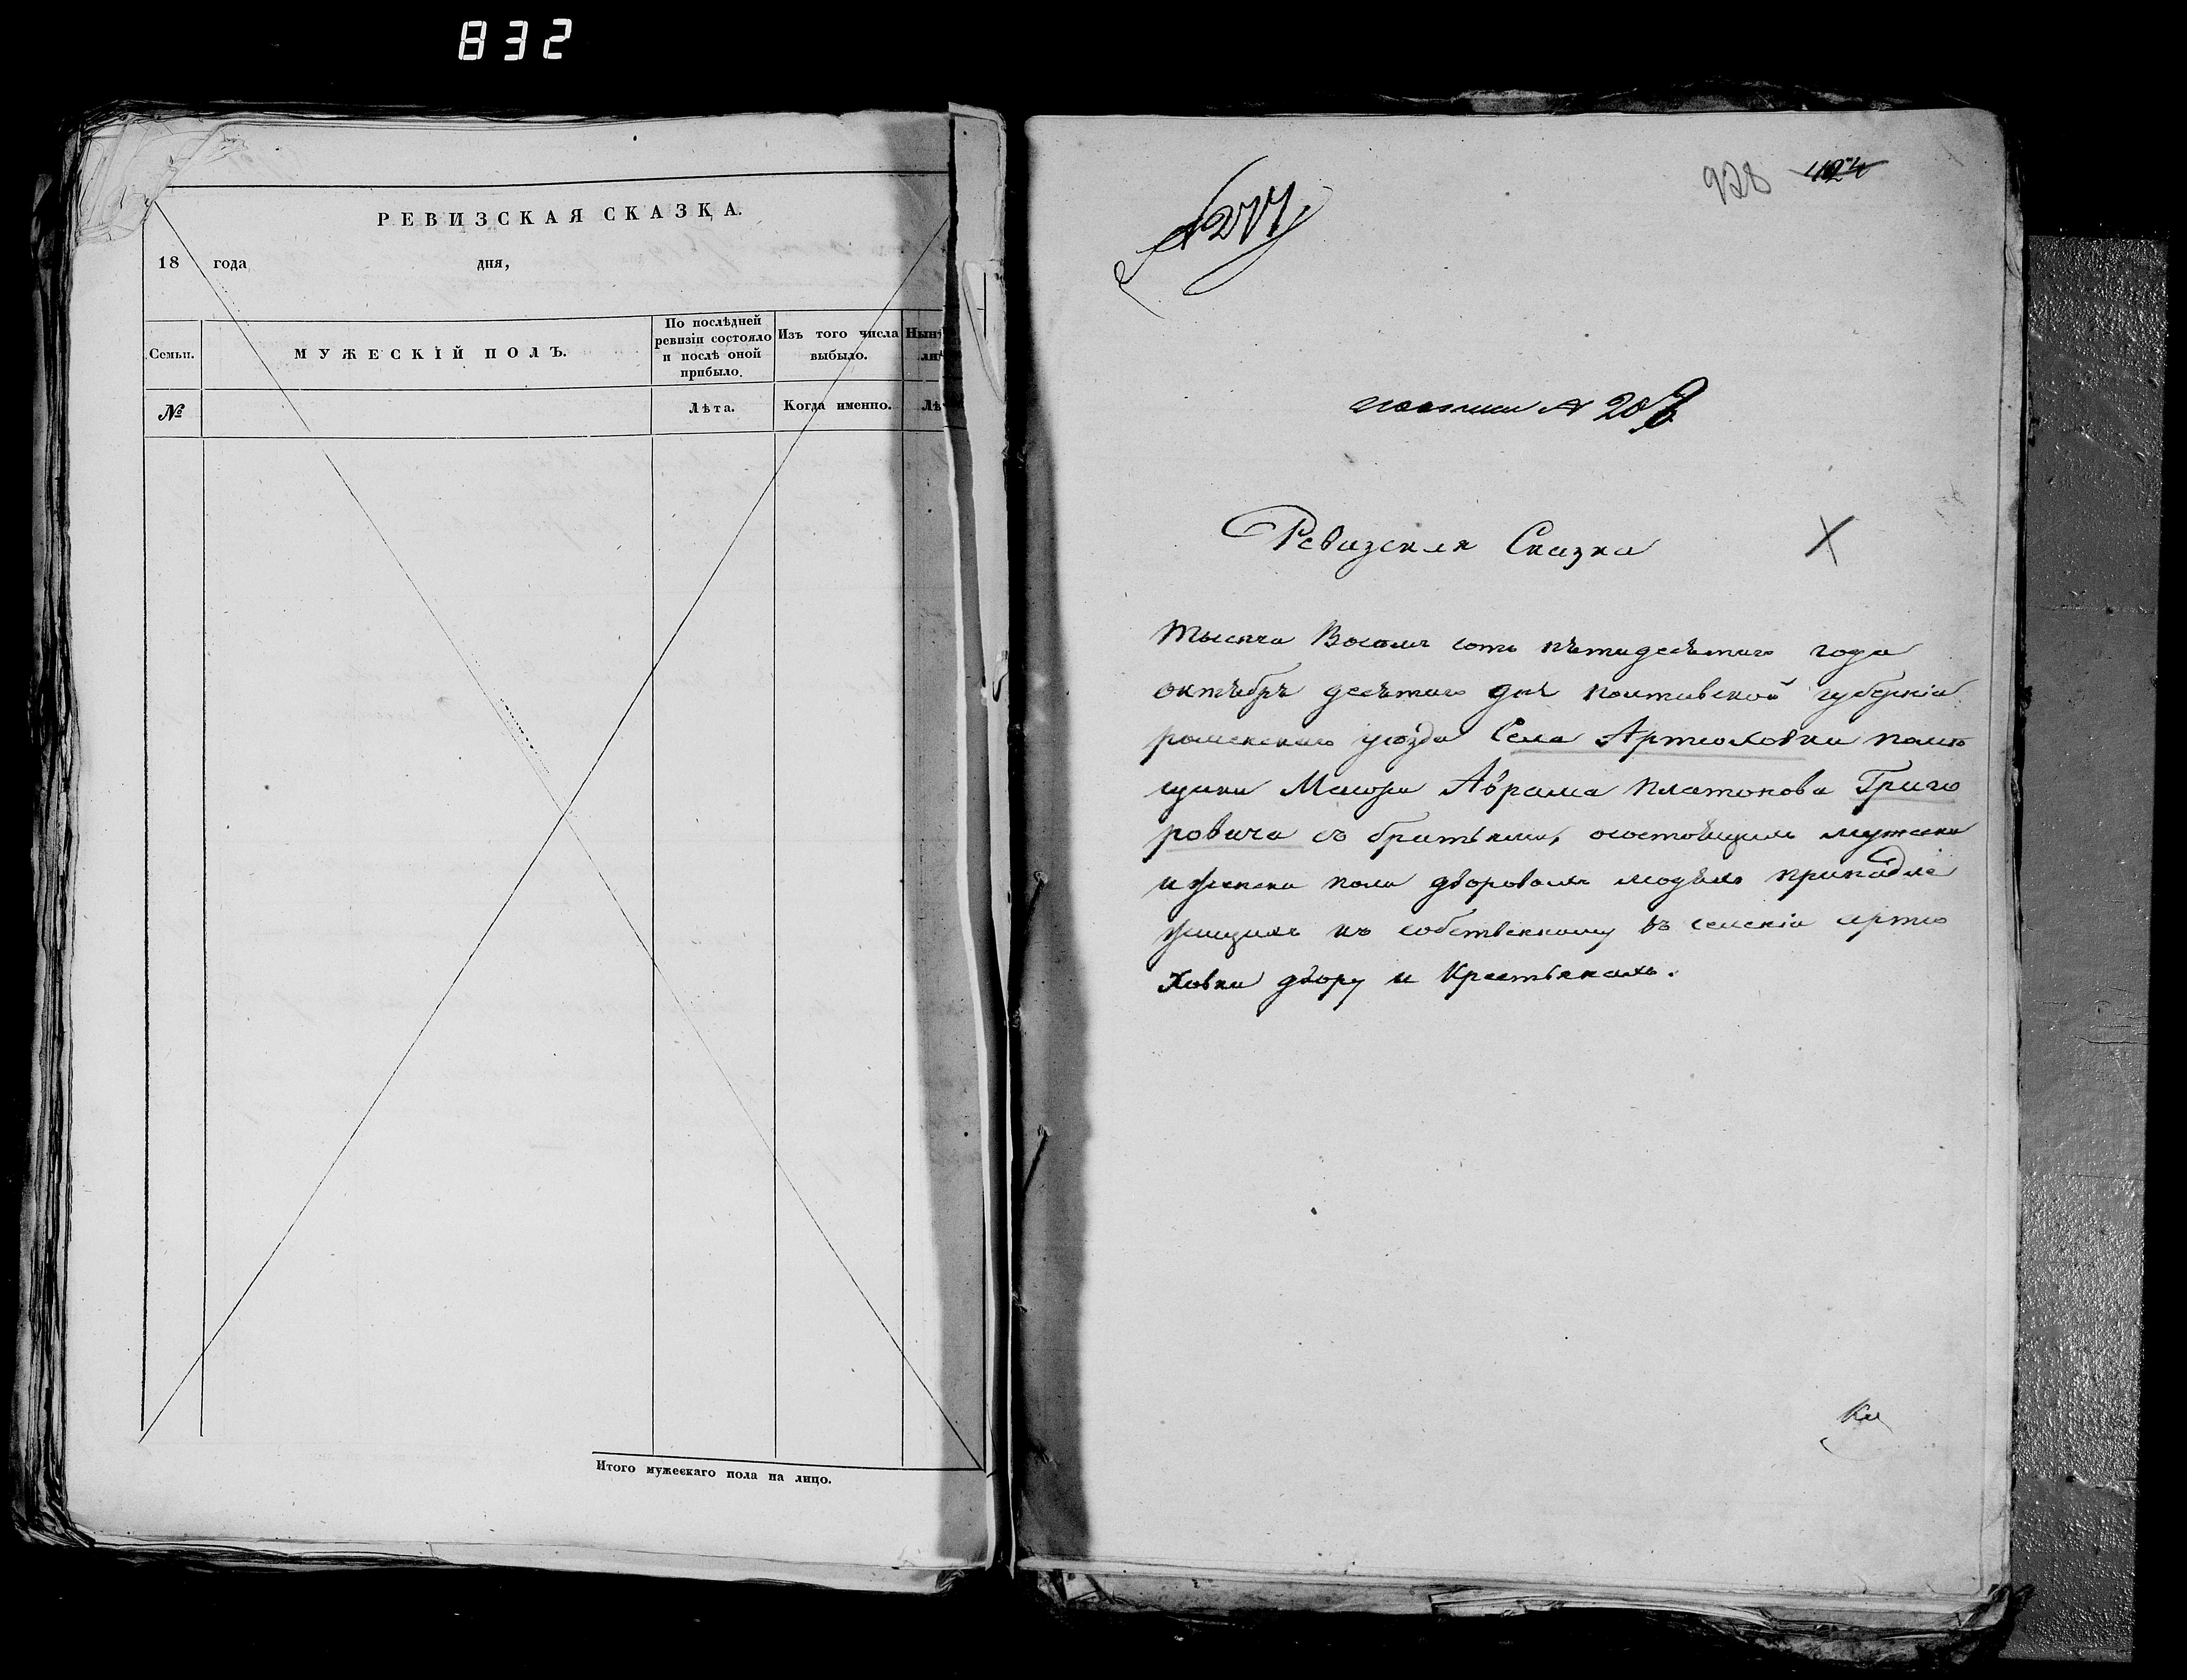 832
РЕВИЗСКАЯ СКАЗКА.
18 года дня,
Семьи.
МУЖЕСКІЙ ПОЛЪ.
По послѣдней ревизіи состояло и послѣ оной прибыло.
Изъ того числа выбыло.
№
Лѣта.
Когда именно.
Итого мужескаго пола на лицо.
928 424
№ 277
№ 207
Ревизская Сказка
Тысяча Восемь сотъ пѣтидесѣтого года
октѣбрѣ десѣтого днѣ полтавской губерніи
роменскаго уюзда Села Артюховки помѣ
щика Маіора Аврама Платонова Григо
ровича съ братьями, осостоѣщимъ мужеска
и женска пола дворовымъ людѣмъ принадле
жащимъ къ собственному въ селеніи артю
ховки двору и Крестьянамъ.